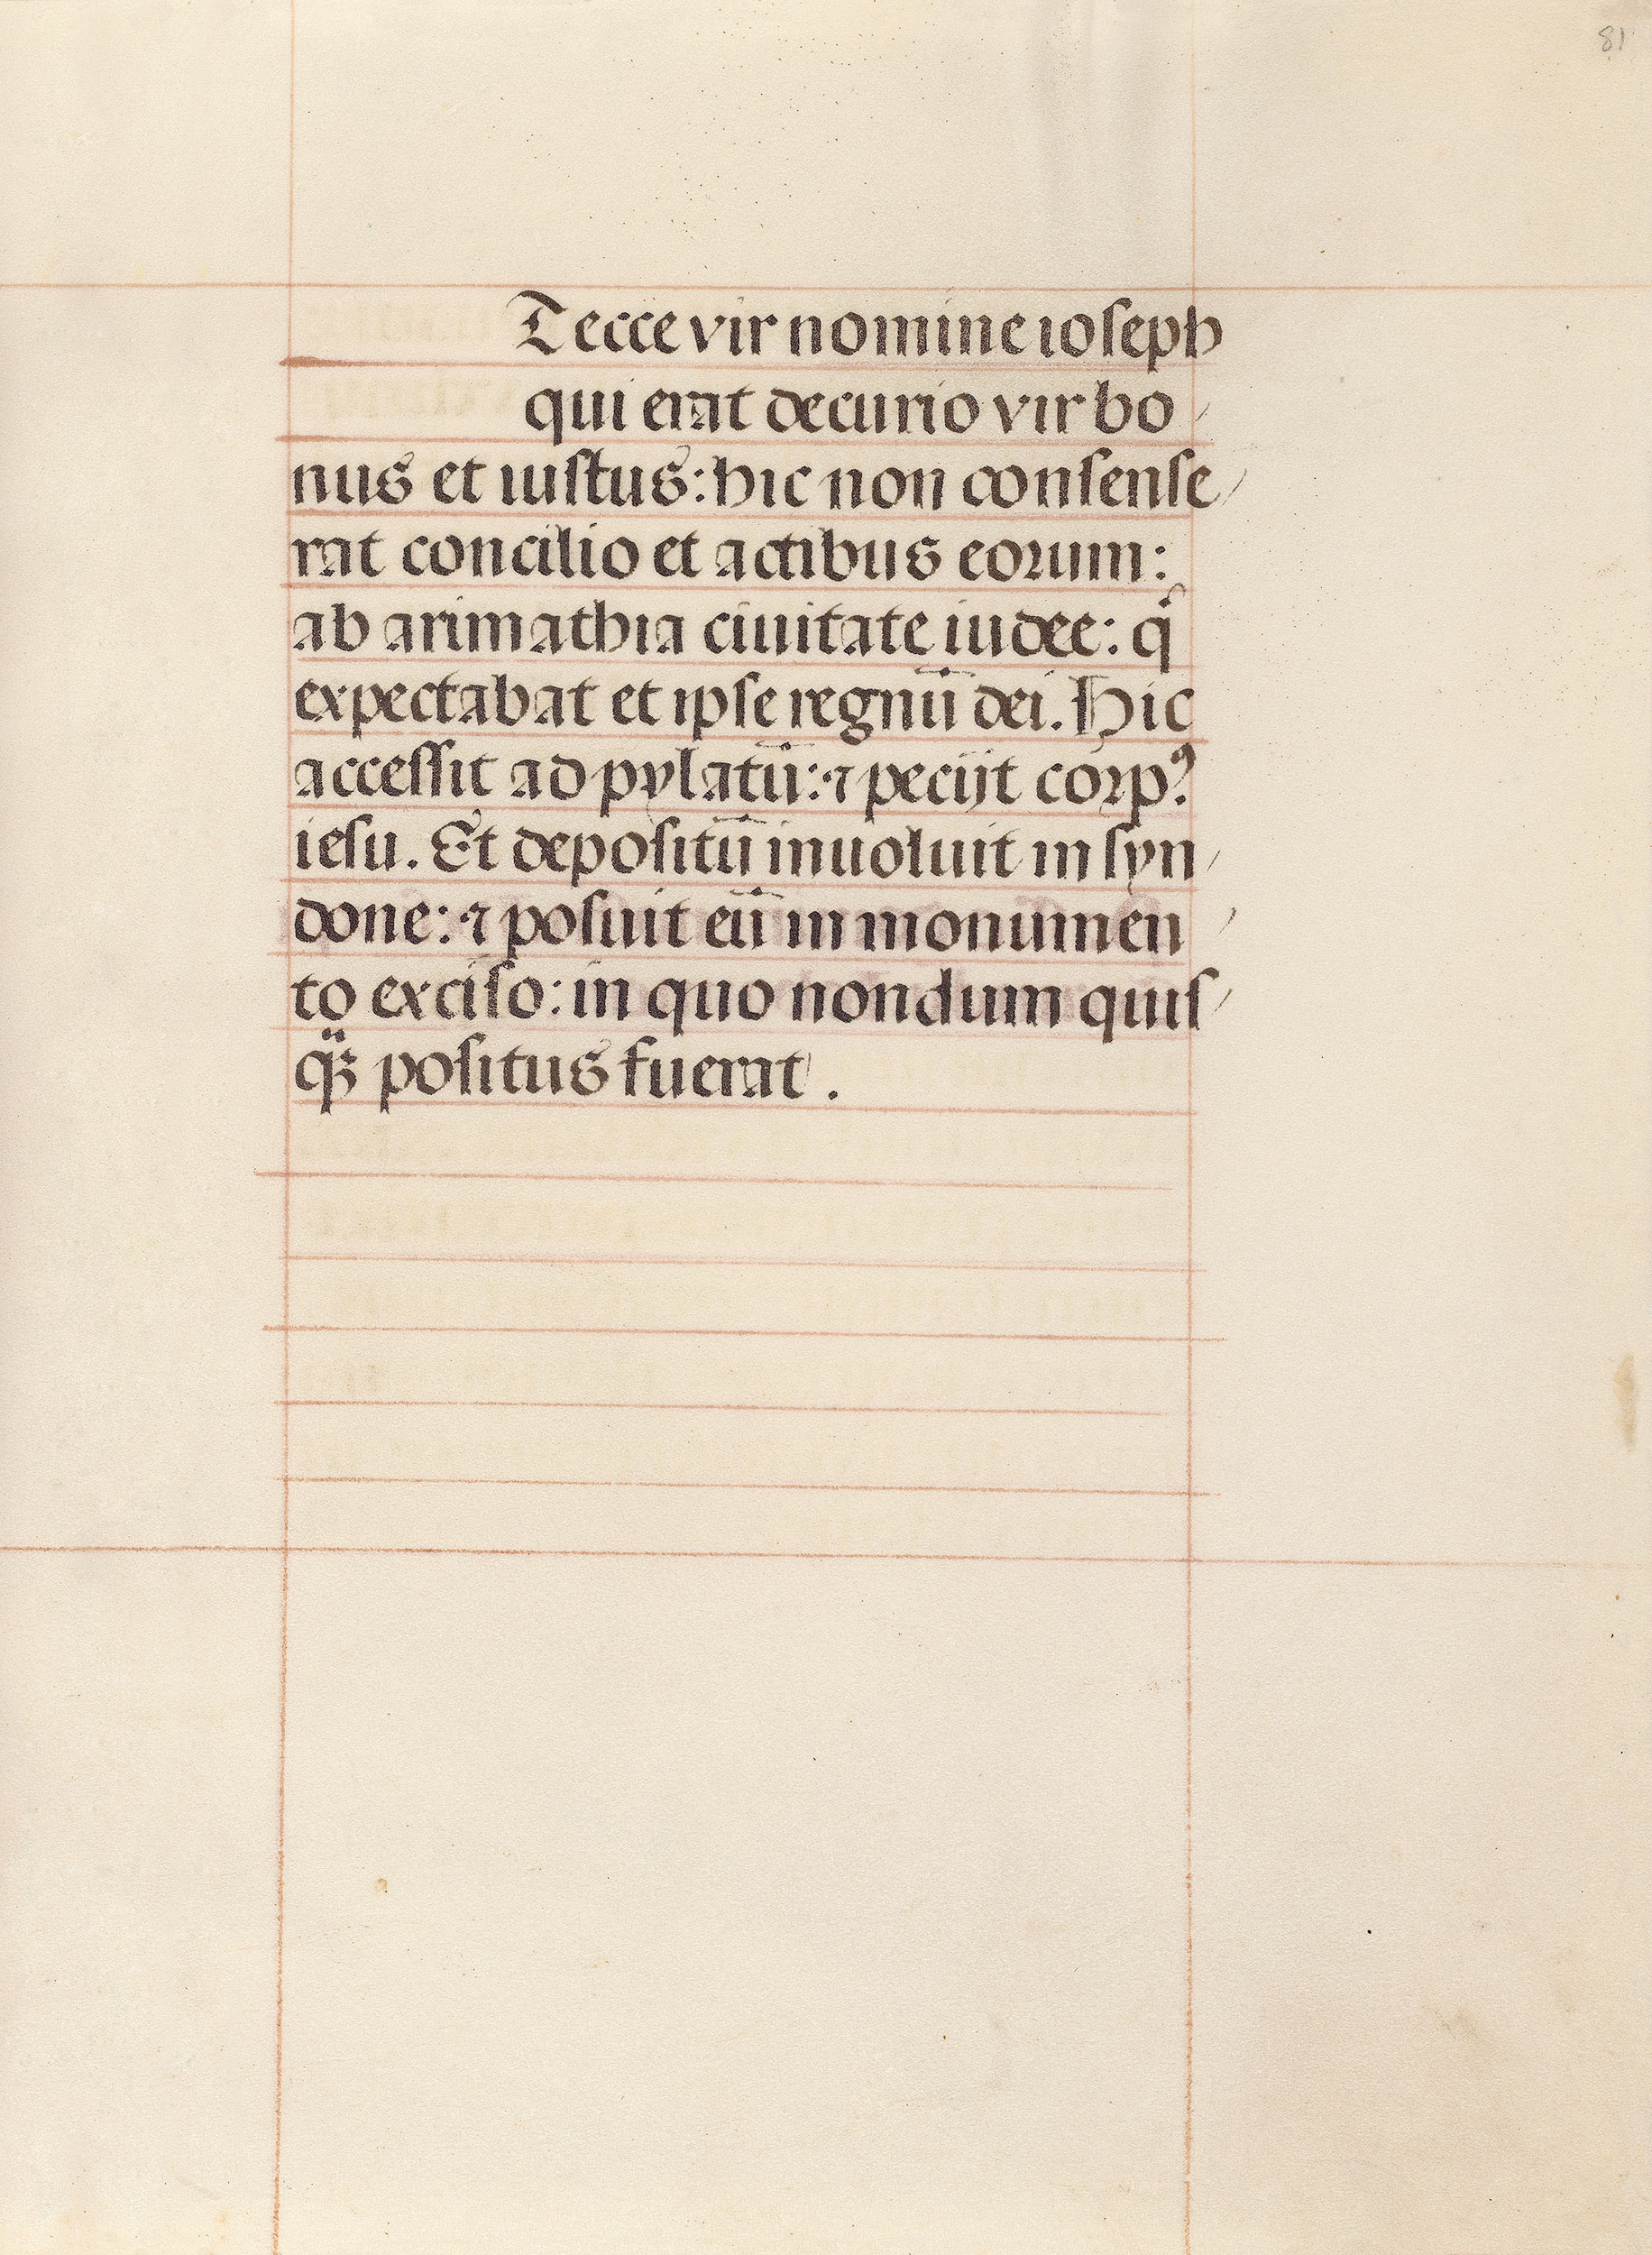 81
T ecce vir nomine ioseph
qui erat decurio vir bo
nus et iustus: hic non consense
rat concilio et actibus eorum:
ab arimathia ciuitate iudee: qͥ
expectabat et ipse regnū dei. Hic
accessit ad pylatū: ⁊ pecijt corpꝰ
iesu. Et depositū inuoluit in syn
done: ⁊ posuit eū in monumen
to exciso: in quo nondum quis
qᷓꝫ positus fuerat.